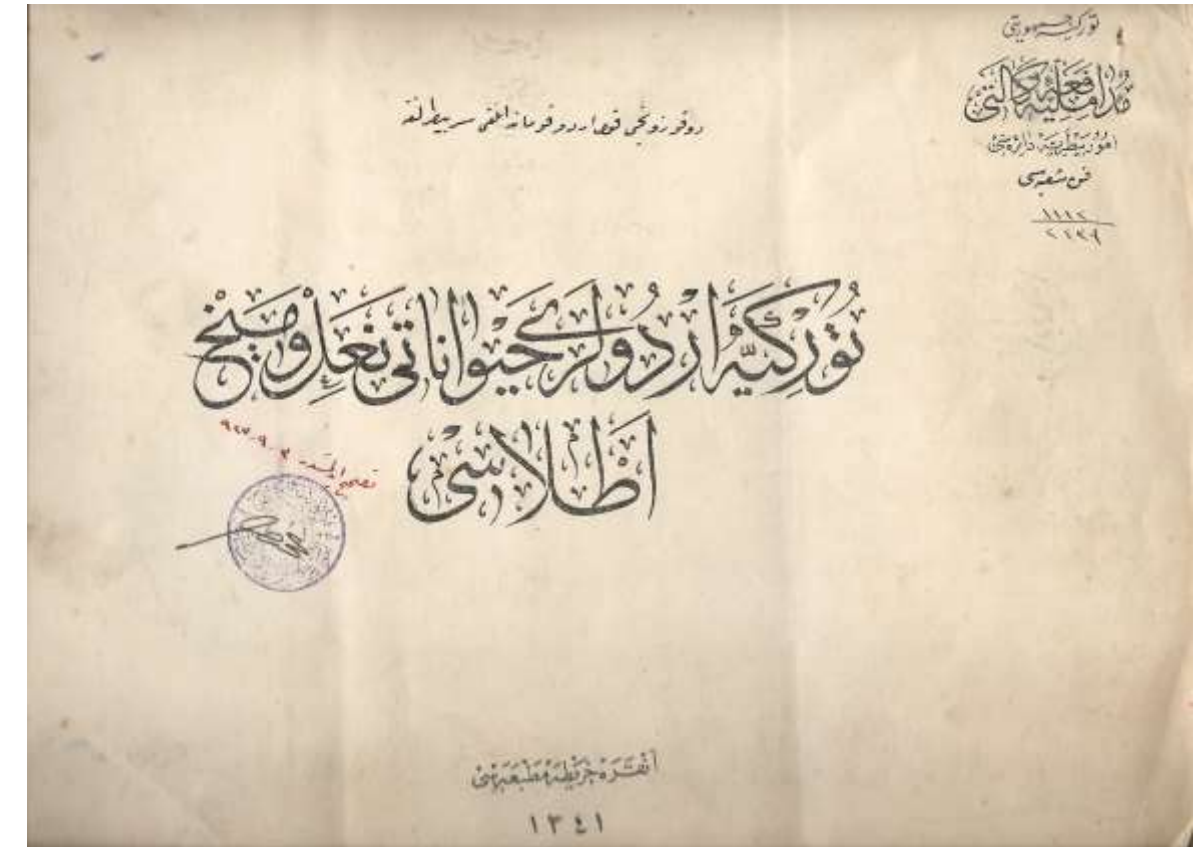 توركيه جمهوريتى
مدافعۀ مليه وكالتى
امور بيطريه دائره‌سى
فن شعبه‌سى
دوقوزنجى قول اردو قوماندانلغى سر بيطرلغنه
توركيه اردولرى حيواناتى نعل و ميخ
اطلاسى
انقره خريطه مطبعه‌سى
١٣٤١